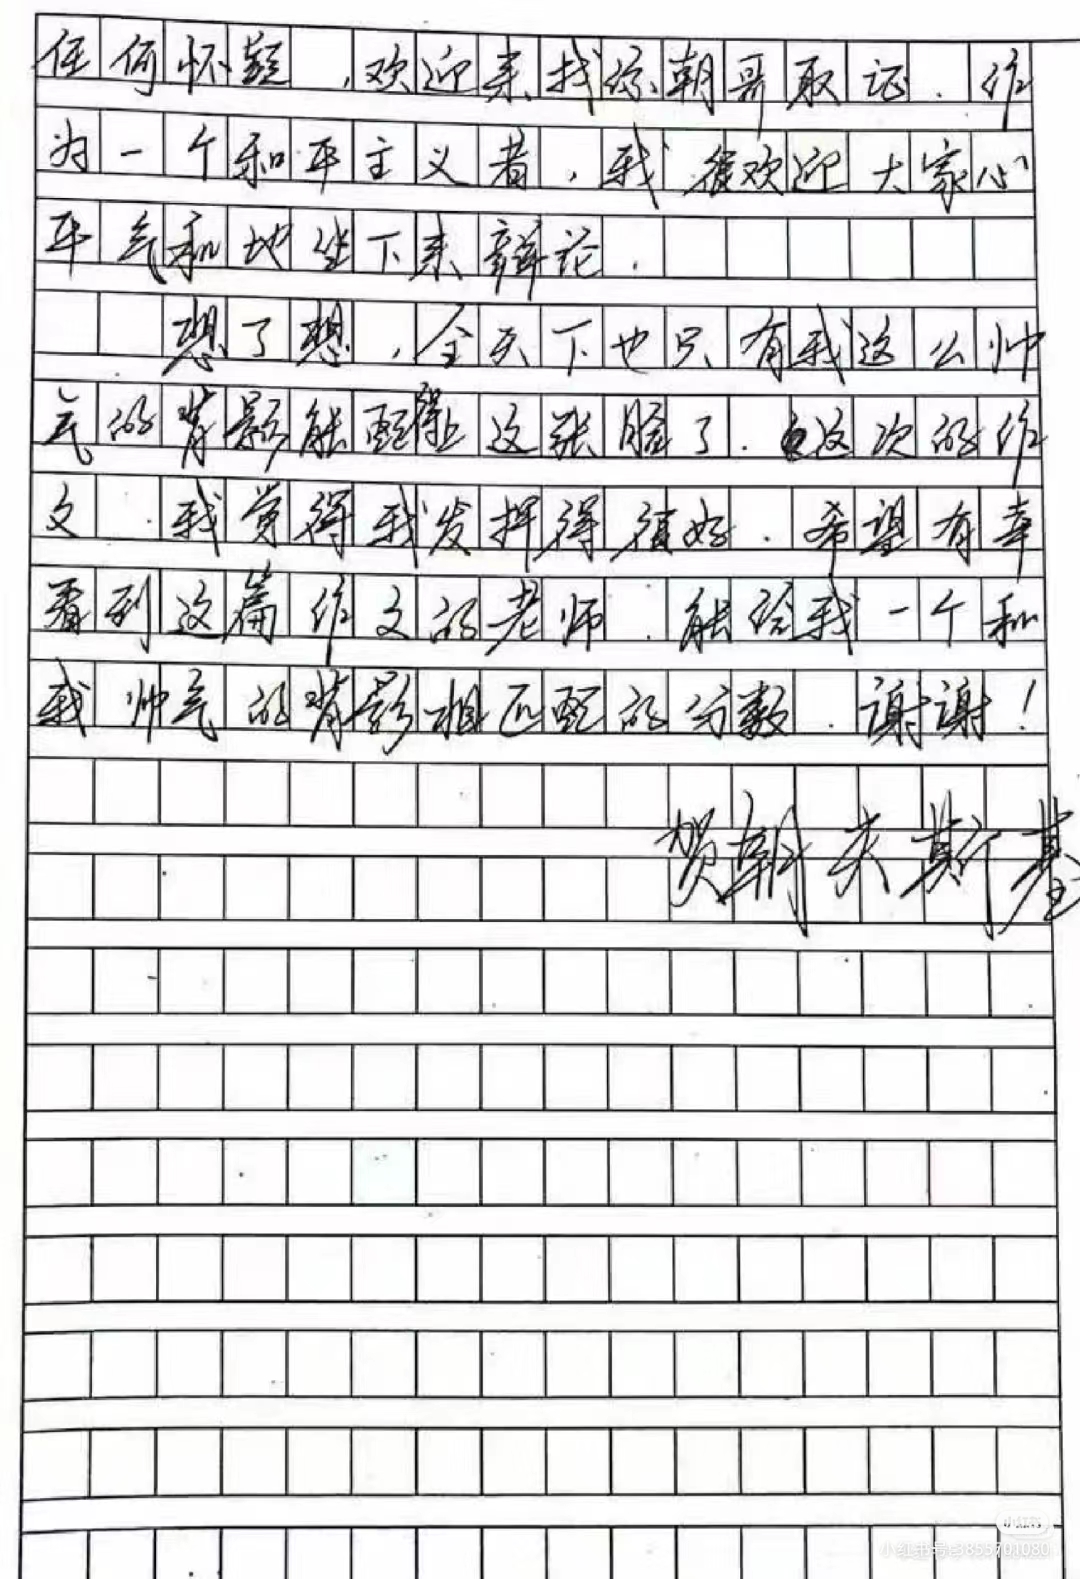 任何怀疑，欢迎来找你朝哥取证．作
为一个和平主义者，我很欢迎大家心
平气和地坐下来辩论．
想了想，全天下也只有我这么帅
气的背影能配得上这张脸了．这次的作
文．我觉得我发挥得很好．希望有幸
看到这篇作文的老师．能给我一个和
我帅气的背影相匹配的分数．谢谢！
贺朝夫斯基
小红书
小红书号:3855701080